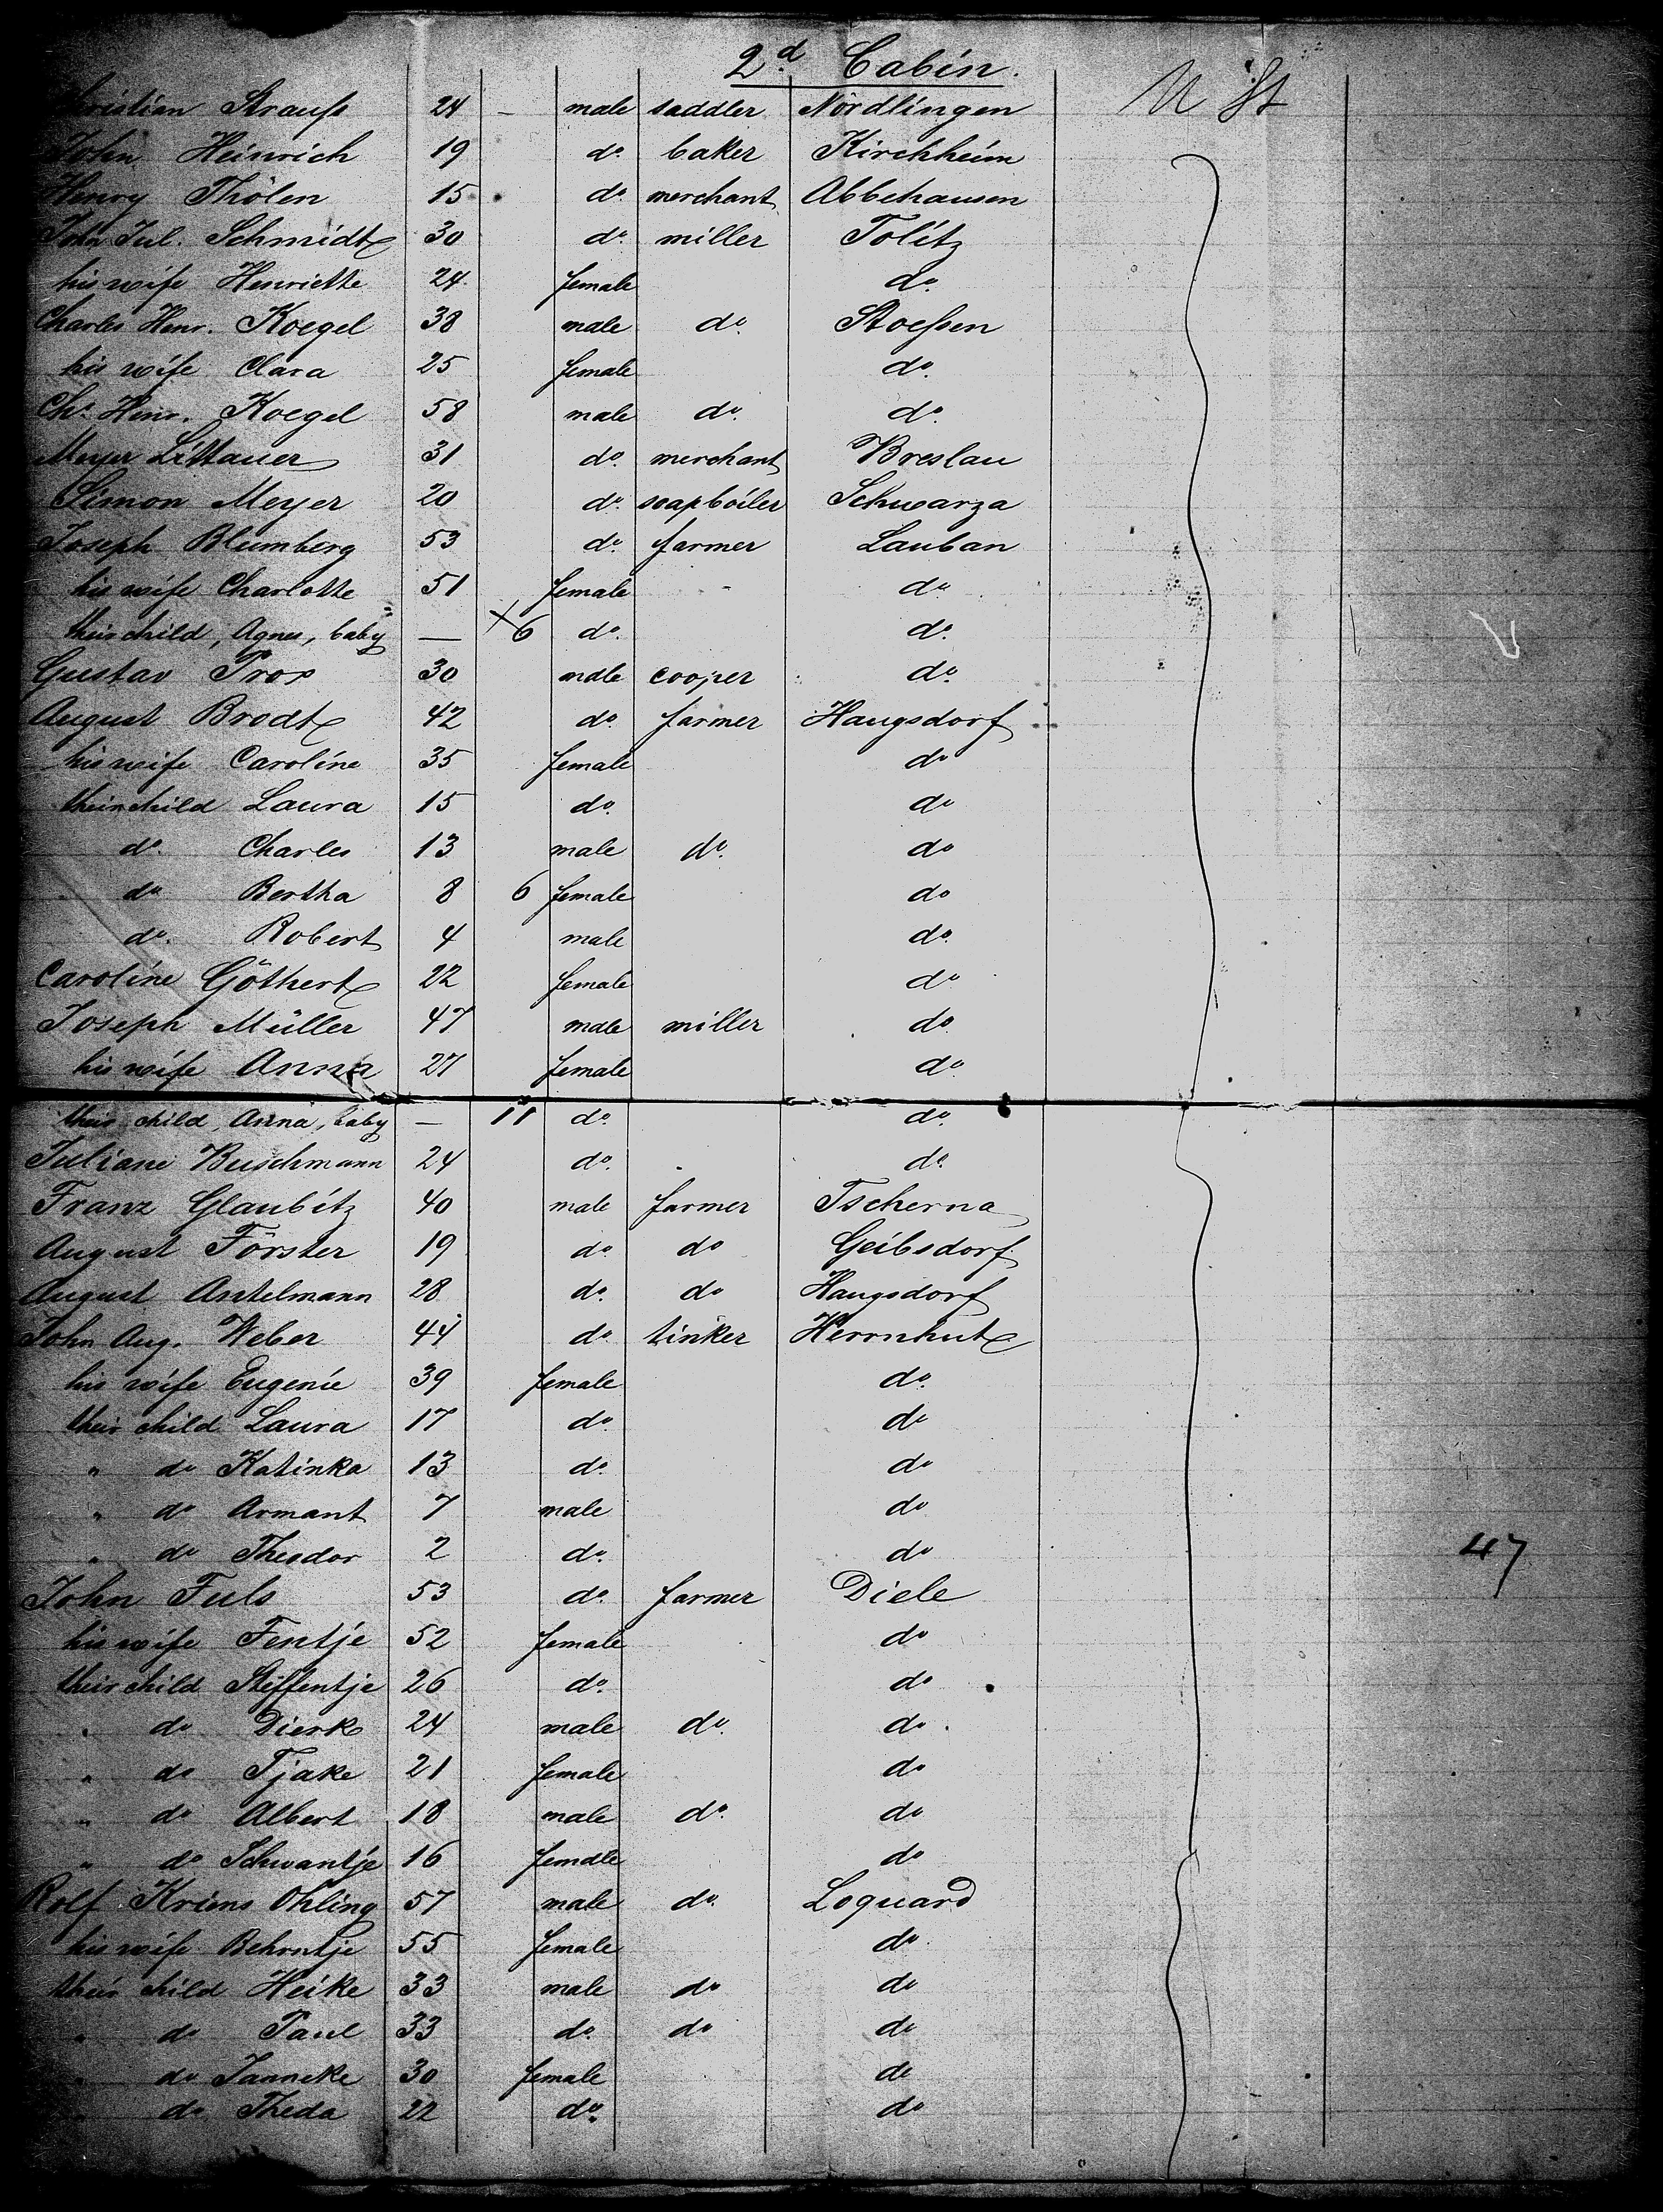 2d. Cabin.
Christian Strauß 24 – male saddler Nördlingen U St
John Heinrich 19 do. baker Kirchheim
Henry Thölen 15 do. merchant Abbehausen
John Jul. Schmidt 30 do. miller Tolitz
his wife Henriette 24 female do.
Charles Henr. Koegel 38 male do. Stoeßen
his wife Clara 25 female do.
Ch. Henr. Koegel 58 male do. do.
Meyer Littauer 31 do. merchant Breslau
Simon Meyer 20 do. soapboiler Schwarza
Joseph Blumberg 53 do. farmer Lauban
his wife Charlotte 51 female do.
their child, Agnes, baby — 6 do. do.
Gustav 30 male cooper do.
August Brodt 42 do. farmer Haugsdorf
his wife Caroline 35 female do
their child Laura 15 do. do
do. Charles 13 male do. do
do Bertha 8 6 female do
do. Robert 4 male do.
Caroline Göthert 22 female do
Joseph Müller 47 male miller do.
his wife Anna 27 female do.
their child, Anna, baby — 11 do. do.
Juliane Buschmann 24 do. do.
Franz Glaubitz 40 male farmer Tscherna
August Förster 19 do. do Geibsdorf
August Antelmann 28 do. do Haugsdorf
John Aug. Weber 44 do. tinker Herrnhut
his wife Eugenie 39 female do.
their child Laura 17 do. do
" do Katinka 13 do. do
" do Armant 7 male do
" do Theodor 2 do. do 47
John Fuls 53 do. farmer Diele
his wife Fentje 52 female do
their child Steffentje 26 do. do
" do Dierk 24 male do. do.
" do Tjake 21 female do
" do Albert 18 male do. do
" do Schwantje 16 female do
Rolf Ohling 57 male do. Loquard
his wife Behrntje 55 female do.
their child Heike 33 male do do
" do Paul 33 do. do do
" do Janneke 30 female do
" do Theda 22 do. do